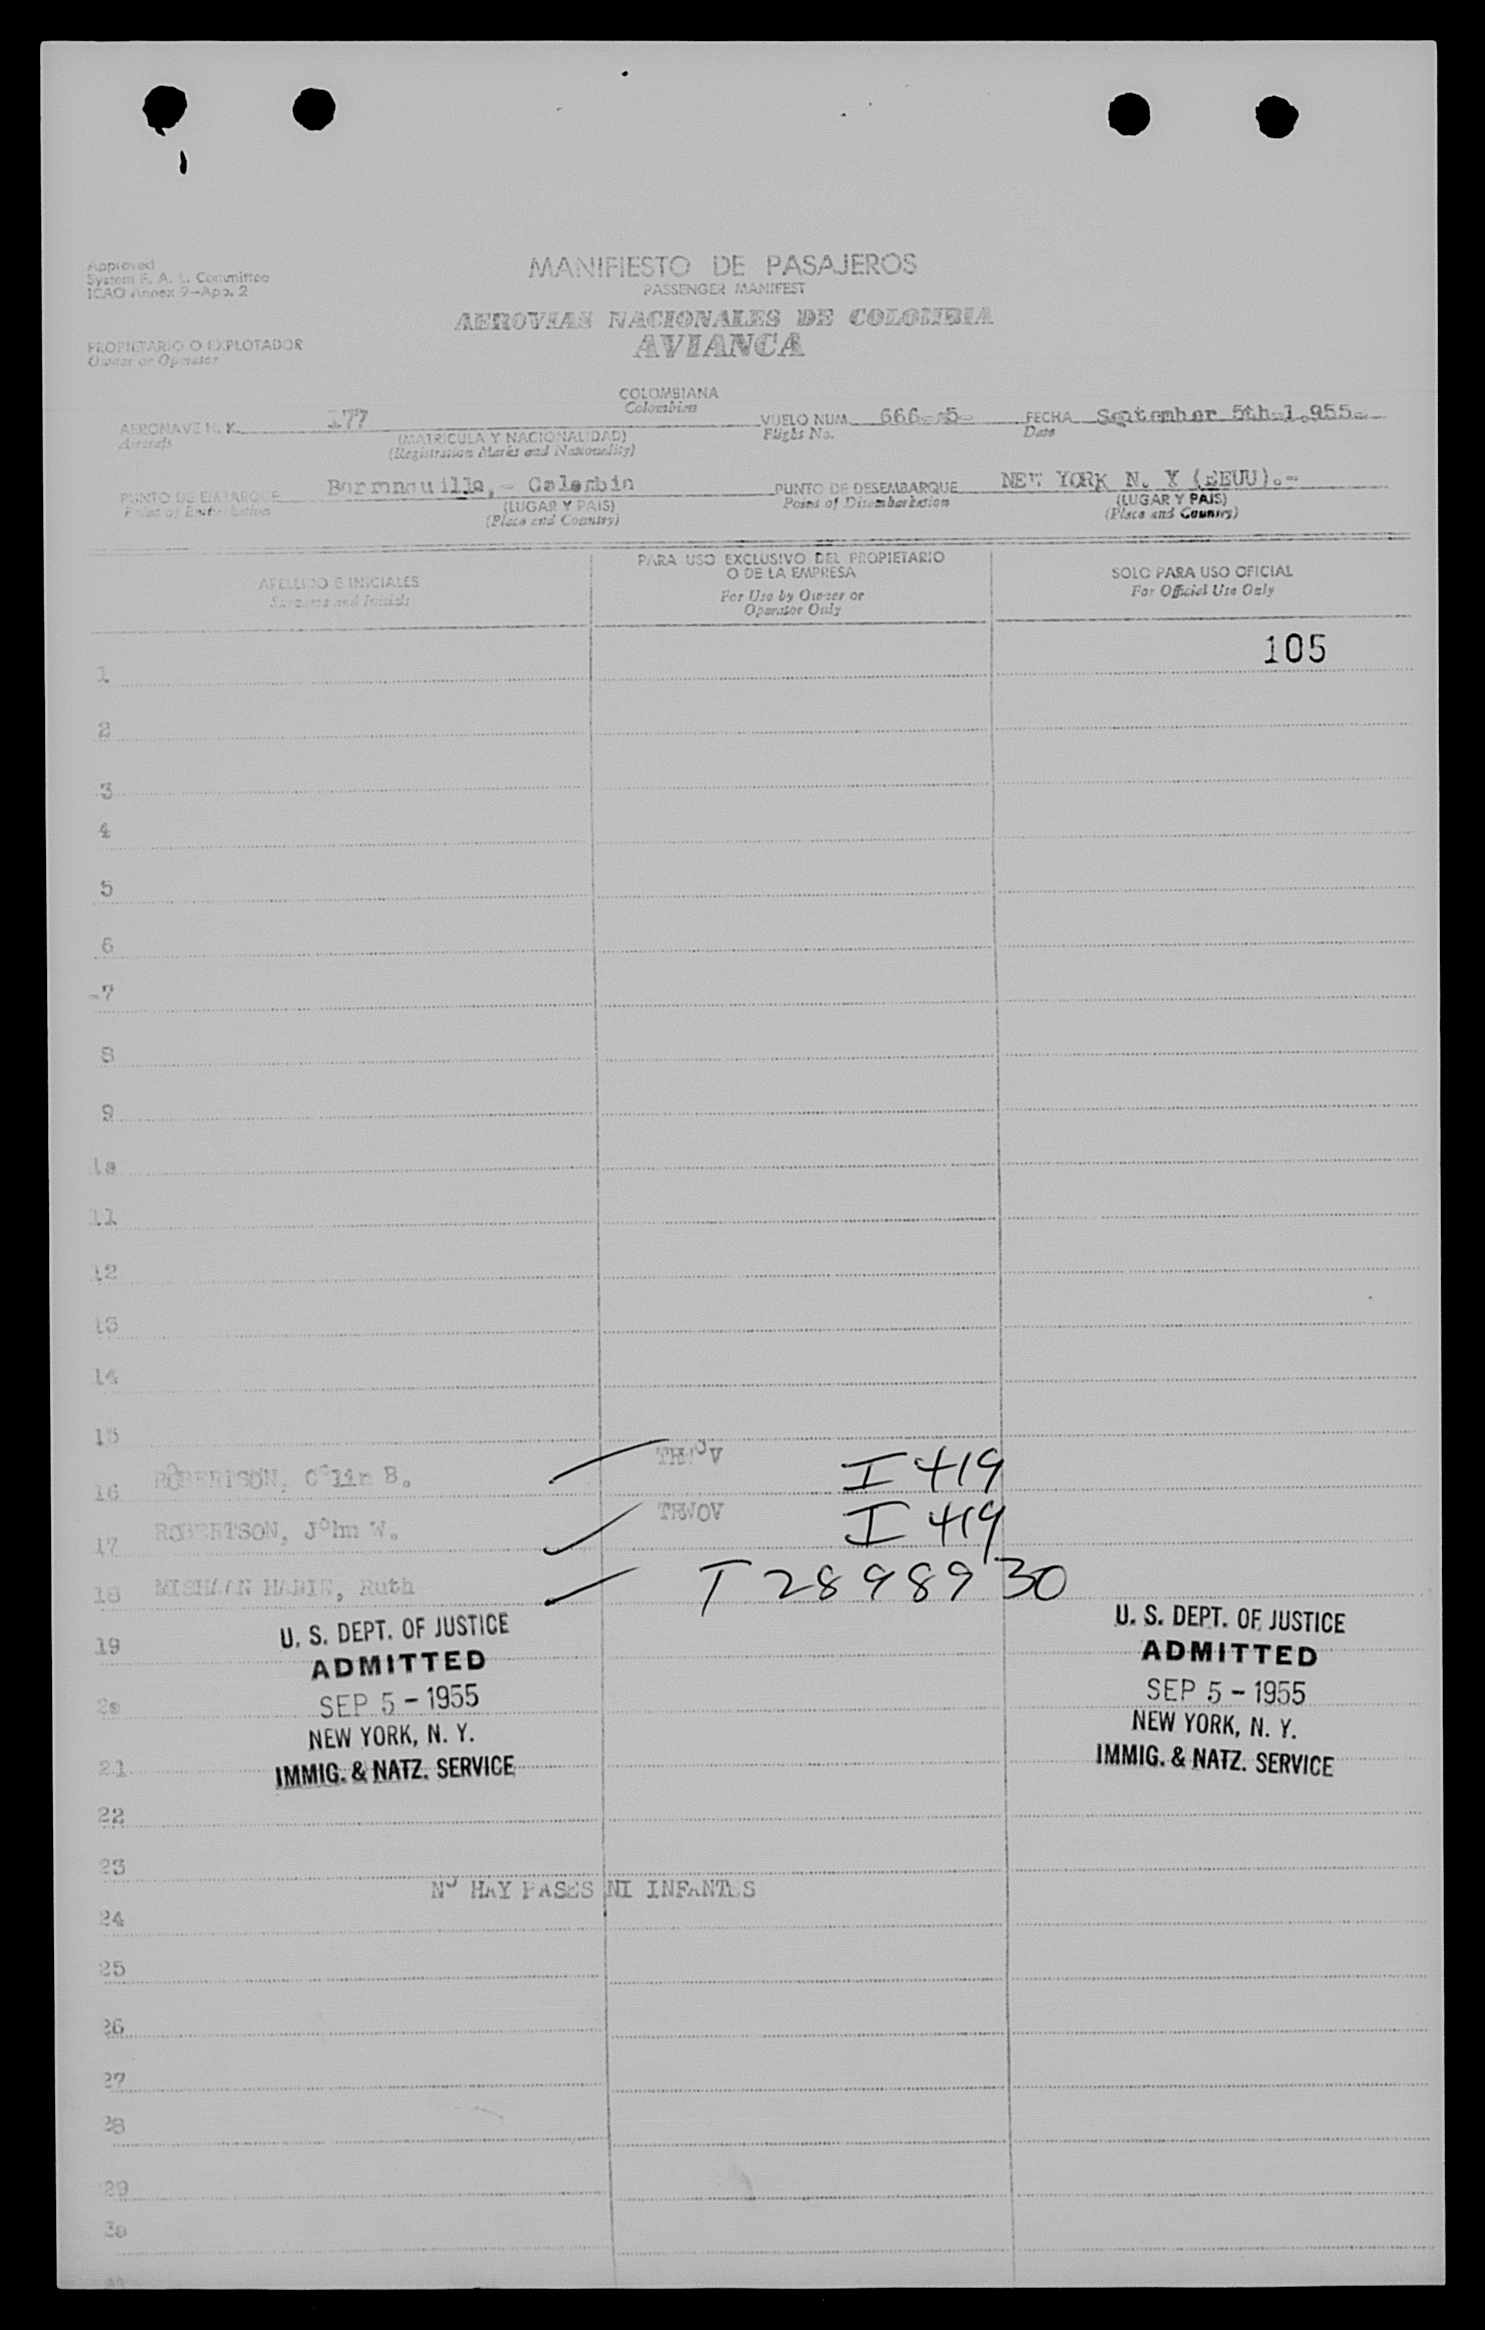 Approved
System F. A. L. Committee
ICAO Annex 9-App. 2
MANIFIESTO DE PASAJEROS
PASSENGER MANIFEST
AEROVIAS NACIONALES DE COLOMBIA
AVIANCA
PROPIETARIO O EXPLOTADOR
Owner or Operator
COLOMBIANA
Colombian
AERONAVE H. K. 177 VUELO NUM. 666- 5- FECHA September 5th-1.955.-
Aircraft (MATRICULA Y NACIONALIDAD) Flight No. Date
(Registration Marks and Nationality)
PUNTO DE EMBARQUE Barranquilla,- Colombia PUNTO DE DESEMBARQUE NEW YORK N. Y (EEUU).-
Point of Embarkation (LUGAR Y PAIS) Point of Disembarkation (LUGAR Y PAIS)
(Place and Country) (Place and Country)
APELLIDO E INICIALES
Surname and Initials
PARA USO EXCLUSIVO DEL PROPIETARIO
O DE LA EMPRESA
For Use by Owner or
Operator Only
SOLO PARA USO OFICIAL
For Official Use Only
1 105
2
3
4
5
6
-7
8
9
10
11
12
13
14
15
16 ROBERTSON, Colin B. TRWOV I 419
17 ROBERTSON, John W. TRWOV I 419
18 Ruth T 2898930
19
20
21
U. S. DEPT. OF JUSTICE
ADMITTED
SEP 5 - 1955
NEW YORK, N. Y.
IMMIG. & NATZ. SERVICE
U. S. DEPT. OF JUSTICE
ADMITTED
SEP 5 - 1955
NEW YORK, N. Y.
IMMIG. & NATZ. SERVICE
22
23
NO HAY PASES NI INFANTES
24
25
26
27
28
29
30